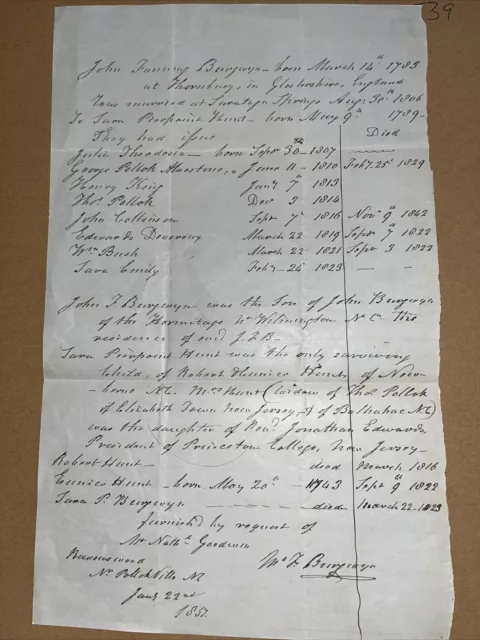 39
John Fanning Burgwyn - born March 14th 1783
at Thornbury, in Glostershire, England
Was married at Saratoga Springs Augt 30th 1806
To Sara Pierpoint Hunt - born May 9th 1789-
They had issue Died
Julia Theodosia - born Septr 30th 1807
George Pollok " June 11 - 1810 Feby 25th 1829
Henry King Jany 7th 1813
Thos. Pollok Decr 3 1814
John Collinson Septr 7th 1816 Novr 9th 1842
Edwards Devereux March 22 1819 Septr 7th 1822
Wm Bush March 22 1821 Septr 3 1822
Sara Emily Feby - 24th 1823 - -
John F Burgwyn - was the Son of John Burgwyn
of the Hermitage Nr Wilmington N C - the
residence of said J.F.B-
Sara Pierpoint Hunt was the only surviving
Child, of Robert & Eunice Hunt, of New-
-berne N.C. Mrs Hunt (widow of Thos Pollok
of Elizabeth Town New Jersey, & of NC)
was the daughter of Revd Jonathan Edwards
President of Princeton College, New Jersey-
Robert Hunt - died March 1816
Eunice Hunt - born May 20th - 1743 Septr 9th 1822
Sara P. Burgwyn - - - - died March 22 - 1823
furnished by request of
Mr Nathl Goodwin
Ravenswood
Nr Pollokville NC
Jany 22nd
1851.
Burgwyn